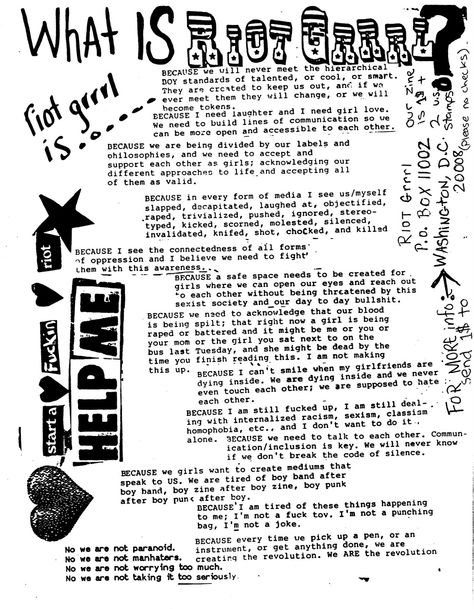 WHAT IS RIOT GRRRL?
riot grrrl
is........
BECAUSE we will never meet the hierarchical
BOY standards of talented, or cool, or smart.
They are created to keep us out, and if we
ever meet them they will change, or we will
become tokens.
BECAUSE I need laughter and I need girl love.
We need to build lines of communication so we
can be more open and accessible to each other.
BECAUSE we are being divided by our labels and
philosophies, and we need to accept and
support each other as girls; acknowledging our
different approaches to life and accepting all
of them as valid.
BECAUSE in every form of media I see us/myself
slapped, decapitated, laughed at, objectified,
raped, trivialized, pushed, ignored, stereo-
typed, kicked, scorned, molested, silenced,
invalidated, knifed, shot, chocked, and killed
BECAUSE I see the connectedness of all forms
of oppression and I believe we need to fight
them with this awareness.
BECAUSE a safe space needs to be created for
girls where we can open our eyes and reach out
to each other without being threatened by this
sexist society and our day to day bullshit.
BECAUSE we need to acknowledge that our blood
is being spilt; that right now a girl is being
raped or battered and it might be me or you or
your mom or the girl you sat next to on the
bus last Tuesday, and she might be dead by the
time you finish reading this. I am not making
this up.
BECAUSE I can't smile when my girlfriends are
dying inside. We are dying inside and we never
even touch each other; we are supposed to hate
each other.
BECAUSE I am still fucked up, I am still deal-
ing with internalized racism, sexism, classism
homophobia, etc., and I don't want to do it
alone.
BECAUSE we need to talk to each other. Commun-
ication/inclusion is key. We will never know
if we don't break the code of silence.
BECAUSE we girls want to create mediums that
speak to US. We are tired of boy band after
boy band, boy zine after boy zine, boy punk
after boy punk after boy.
BECAUSE I am tired of these things happening
to me; I'm not a fuck toy. I'm not a punching
bag, I'm not a joke.
BECAUSE every time we pick up a pen, or an
instrument, or get anything done, we are
creating the revolution. We ARE the revolution
No we are not paranoid.
No we are not manhaters.
No we are not worrying too much.
No we are not taking it too seriously.
start a
Fuckin
riot
HELP ME
FOR MORE info:
Send 1$ to
RIOT Grrrl
P.O. BOX 11002
WASHINGTON, D.C.
20008
Our zine
is 1$ +
2 us
stamps
(please no checks).